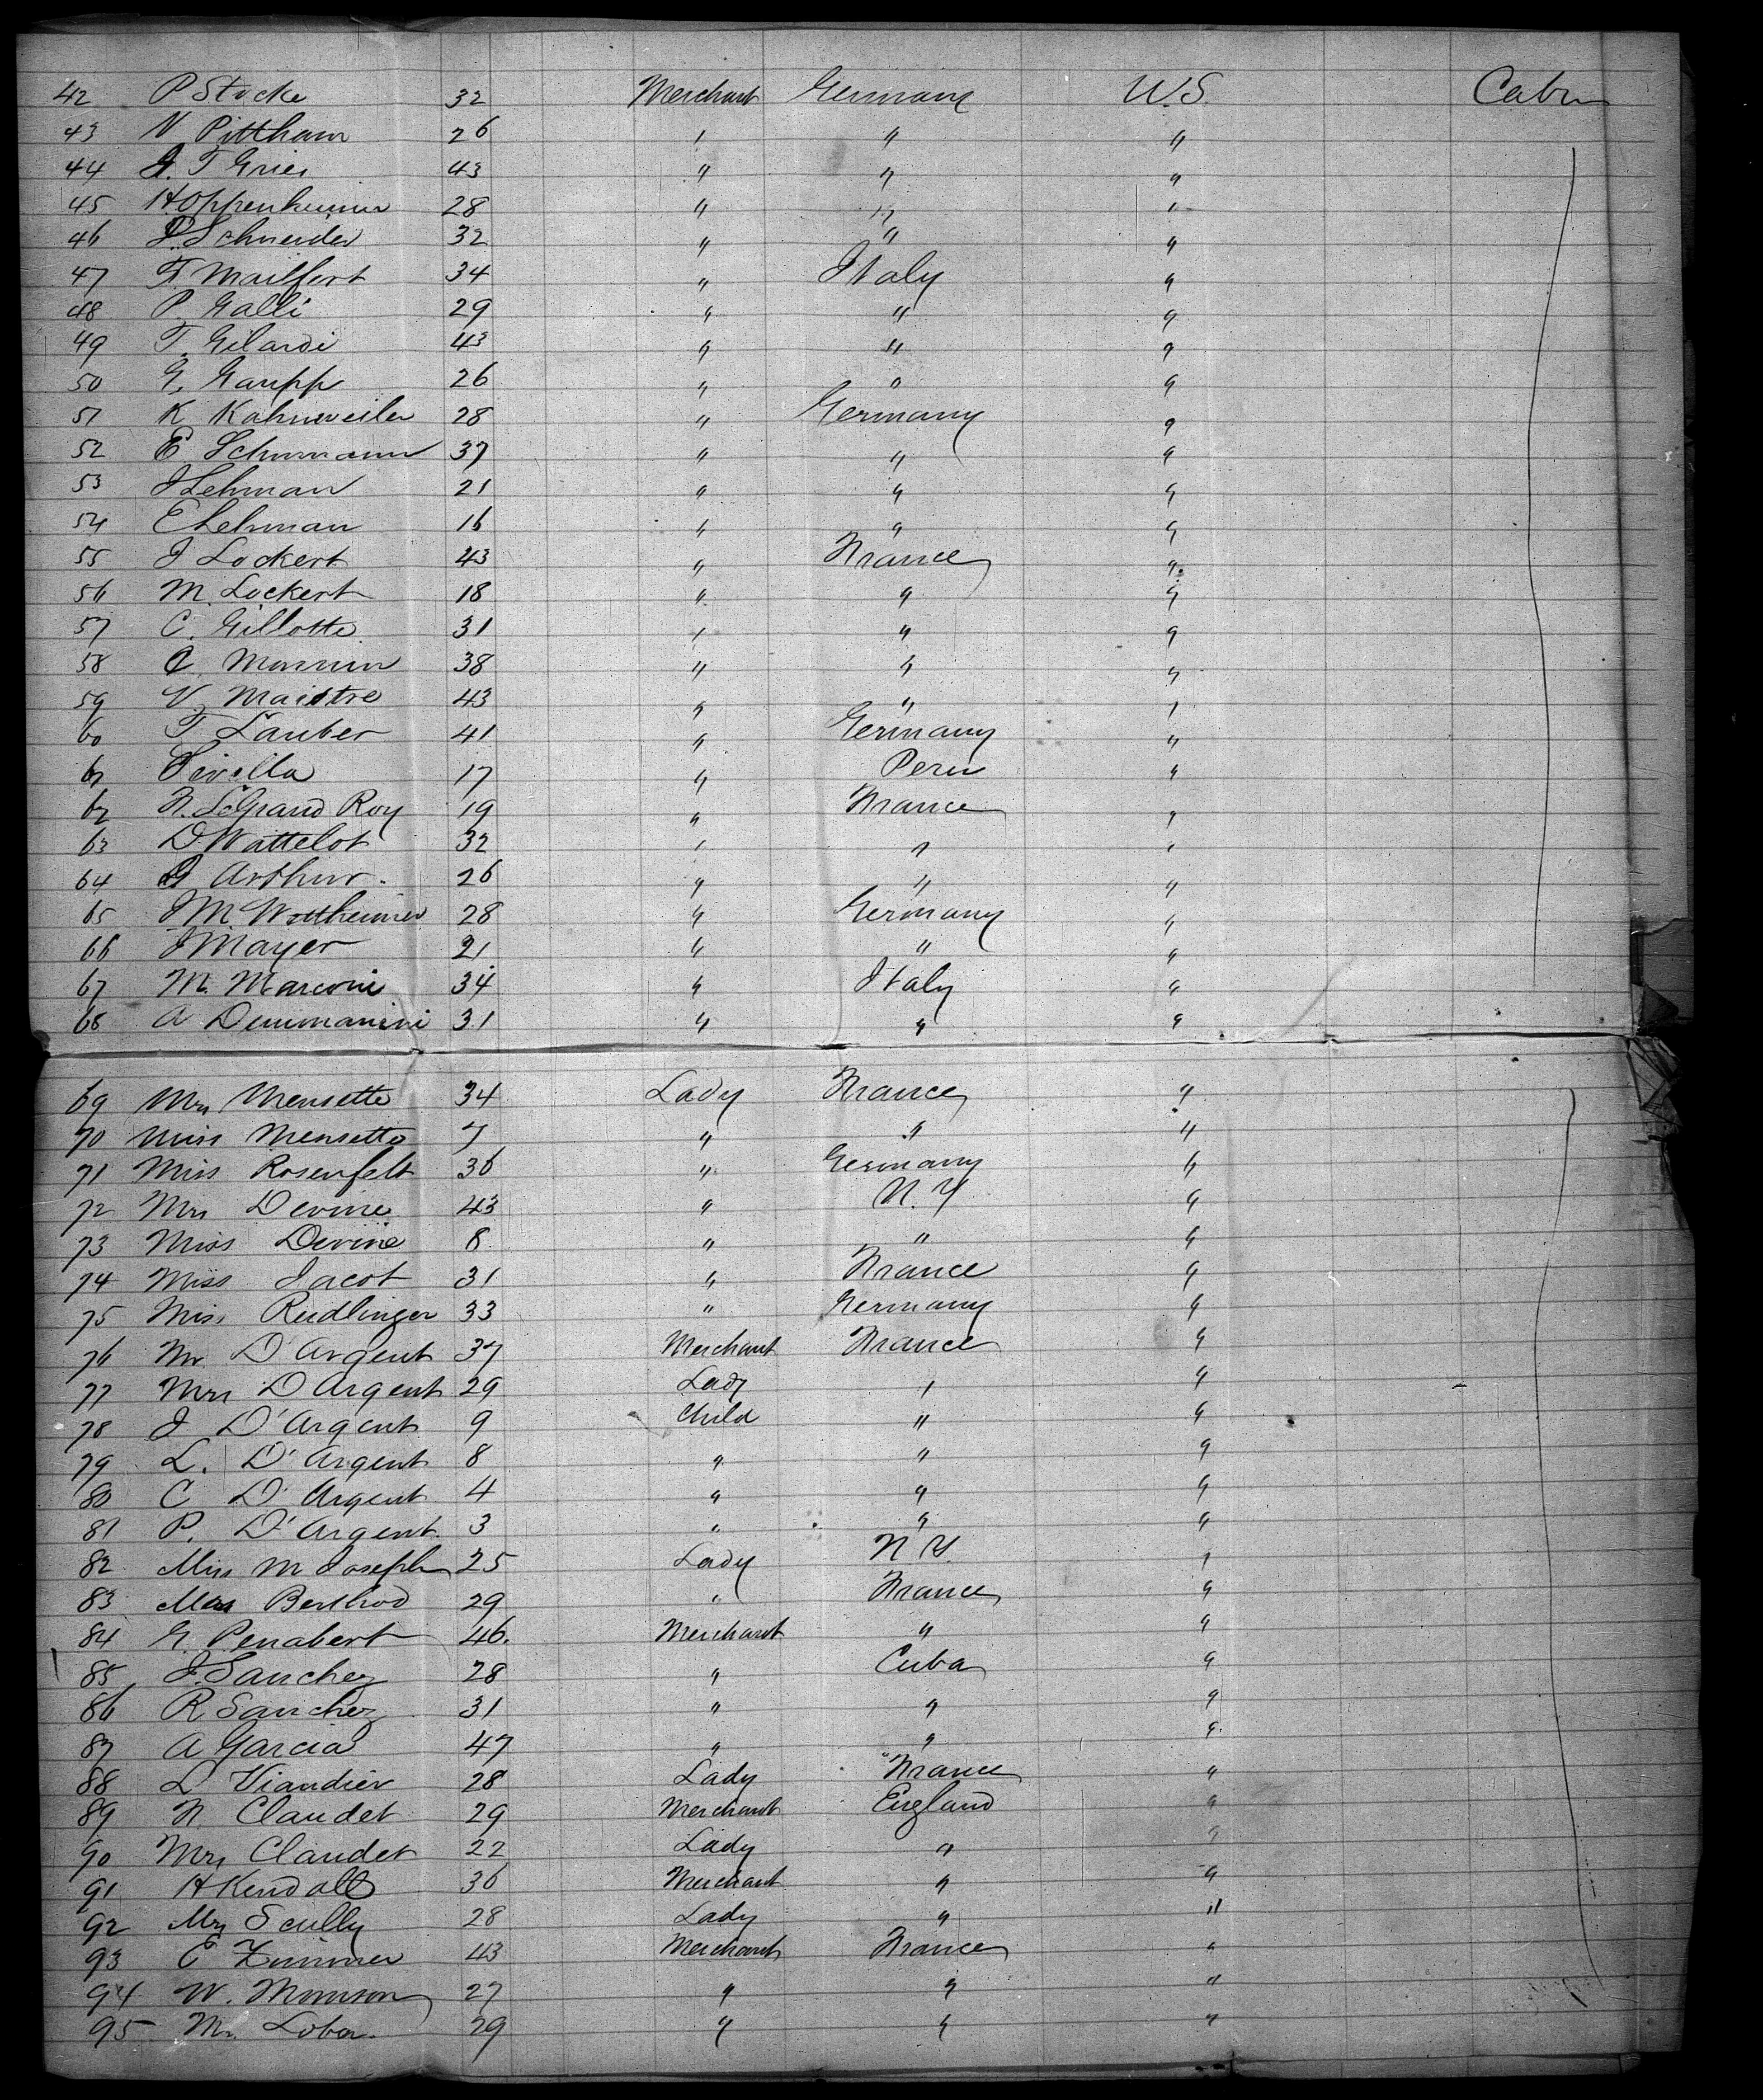 42 P Stocke 32 Merchant Germany U.S. Cabin
43 N Pittham 26 " " "
44 G. T Grier 43 " " "
45 H Oppenheimer 28 " " "
46 P. Schneider 32 " " "
47 F. Mailfert 34 " Italy "
48 P. Galli 29 " " "
49 T. Gilardi 43 " " "
50 G. Gaupp 26 " " "
51 K Kahnweiler 28 " Germany "
52 E. Schumann 37 " " "
53 J Lehman 21 " " "
54 E Lehman 16 " " "
55 J Lockert 43 " France "
56 M. Lockert 18 " " "
57 C. Gillotte 31 " " "
58 C. 38 " " "
59 V. Maistre 43 " " "
60 T. Lauber 41 " Germany "
61 17 " Peru "
62 N. LeGrand Roy 19 " France "
63 D. Wattelot 32 " " "
64 G Arthur. 26 " " "
65 J M Wertheimer 28 " Germany "
66 J Mayer 21 " " "
67 M. Marconi 34 " Italy "
68 A 31 " " "
69 Mrs Mensette 34 Lady France "
70 Miss Mensette 7 " " "
71 Miss Rosenfelt 36 " Germany "
72 Mrs Devine 43 " N.Y "
73 Miss Devine 8 " " "
74 Miss Jacot 31 " France "
75 Miss Reidlinger 33 " Germany "
76 Mr D'Argent 37 Merchant France "
77 Mrs D'Argent 29 Lady " "
78 J D'Argent 9 Child " "
79 L. D'Argent 8 " " "
80 C D'Argent 4 " " "
81 P. D'Argent 3 " " "
82 Miss M Joseph 25 Lady N.Y. "
83 Mrs Berthod 29 " France "
84 G. Penabert 46. Merchant " "
85 J. Sanchez 28 " Cuba "
86 R Sanchez 31 " " "
87 A Garcia 47 " " "
88 L Viandier 28 Lady France "
89 N. Claudet 29 Merchant England "
90 Mrs Claudet 22 Lady " "
91 H Kendall 36 Merchant " "
92 Mrs Scully 28 Lady " "
93 E Zimmer 43 Merchant France "
94 W. 27 " " "
95 Mr. 29 " " "